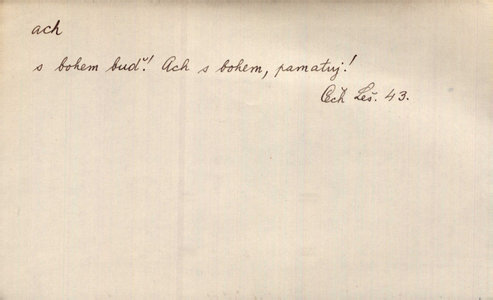 ach
s bohem buď! Ach s bohem, pamatuj!
Čech Leš. 43.